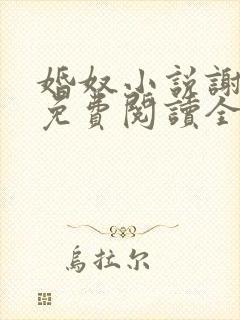 婚奴小説謝
免費閱讀全
烏拉尔